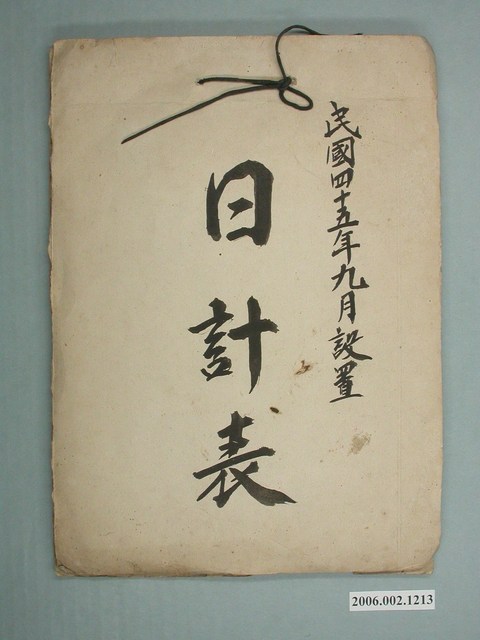 民國四十五年九月設置
日計表
2006.002.1213